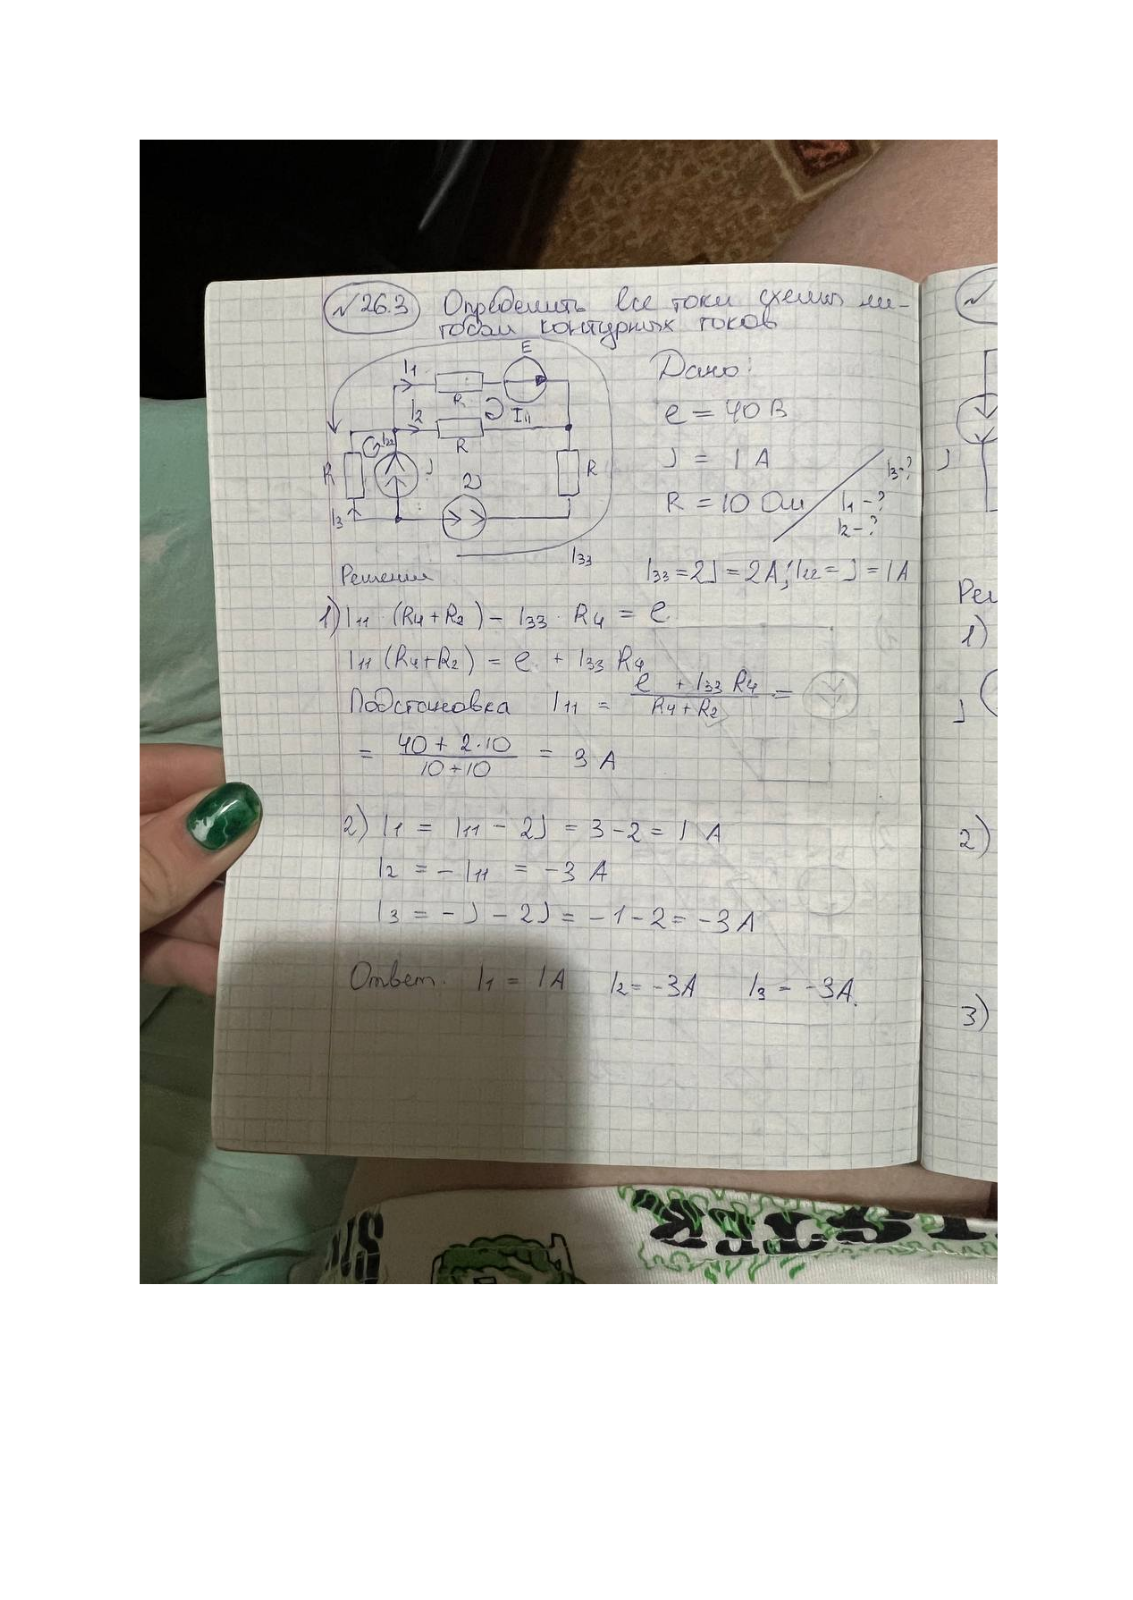 № 26.3 Определить все токи схемы ме-
тодом контурных токов
E
I₁
R
I₁₁
I₂
R
I₂₂
J
R
R
2J
I₃
I₃₃
Дано:
e = 40 В
J = 1 А
R = 10 Ом
I₃-?
I₁-?
I₂-?
Решения
I₃₃ = 2J = 2А; I₂₂ = J = 1А
1) I₁₁ · (R₄+R₂) - I₃₃ · R₄ = e
I₁₁ (R₄+R₂) = e + I₃₃ R₄
Подстановка I₁₁ = (e + I₃₃ R₄)/(R₄+R₂) =
= (40 + 2·10)/(10+10) = 3 А
2) I₁ = I₁₁ - 2J = 3-2 = 1 А
I₂ = - I₁₁ = -3 А
I₃ = - J - 2J = -1-2 = -3 А
Ответ. I₁ = 1А I₂ = -3А I₃ = -3А.
J
Реш
1)
J
2)
3)